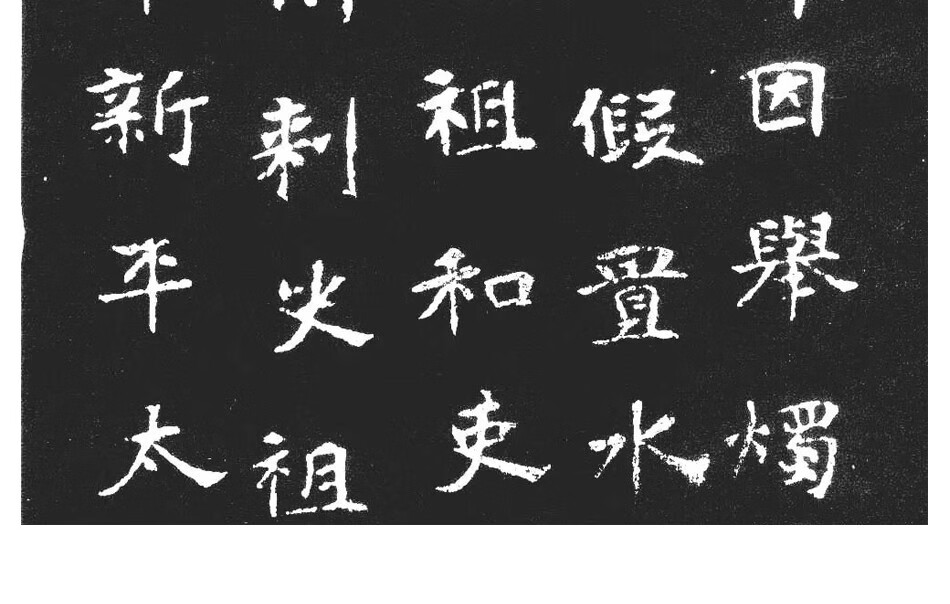 因舉燭
假置水
祖和吏
刺火祖
新平太